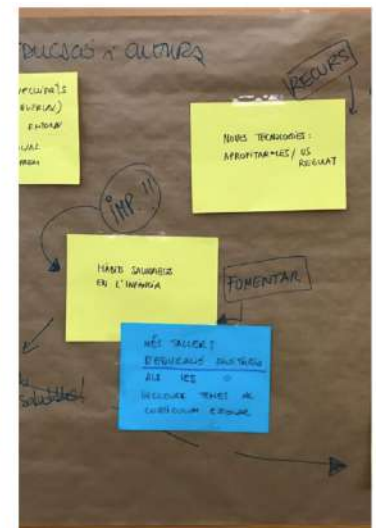 EDUCACIÓ i CULTURA
RECURS
ENTORN
NOVES TECNOLOGIES:
APROFITAR-LES / ÚS
REGULAT
IMP.!!!
HÀBITS SALUDABLES
EN L'INFANCIA
FOMENTAR
MÉS TALLERS
D'EDUCACIÓ SANITÀRIA
ALS IES
INCLOURE TEMES AL
CURRÍCULUM ESCOLAR